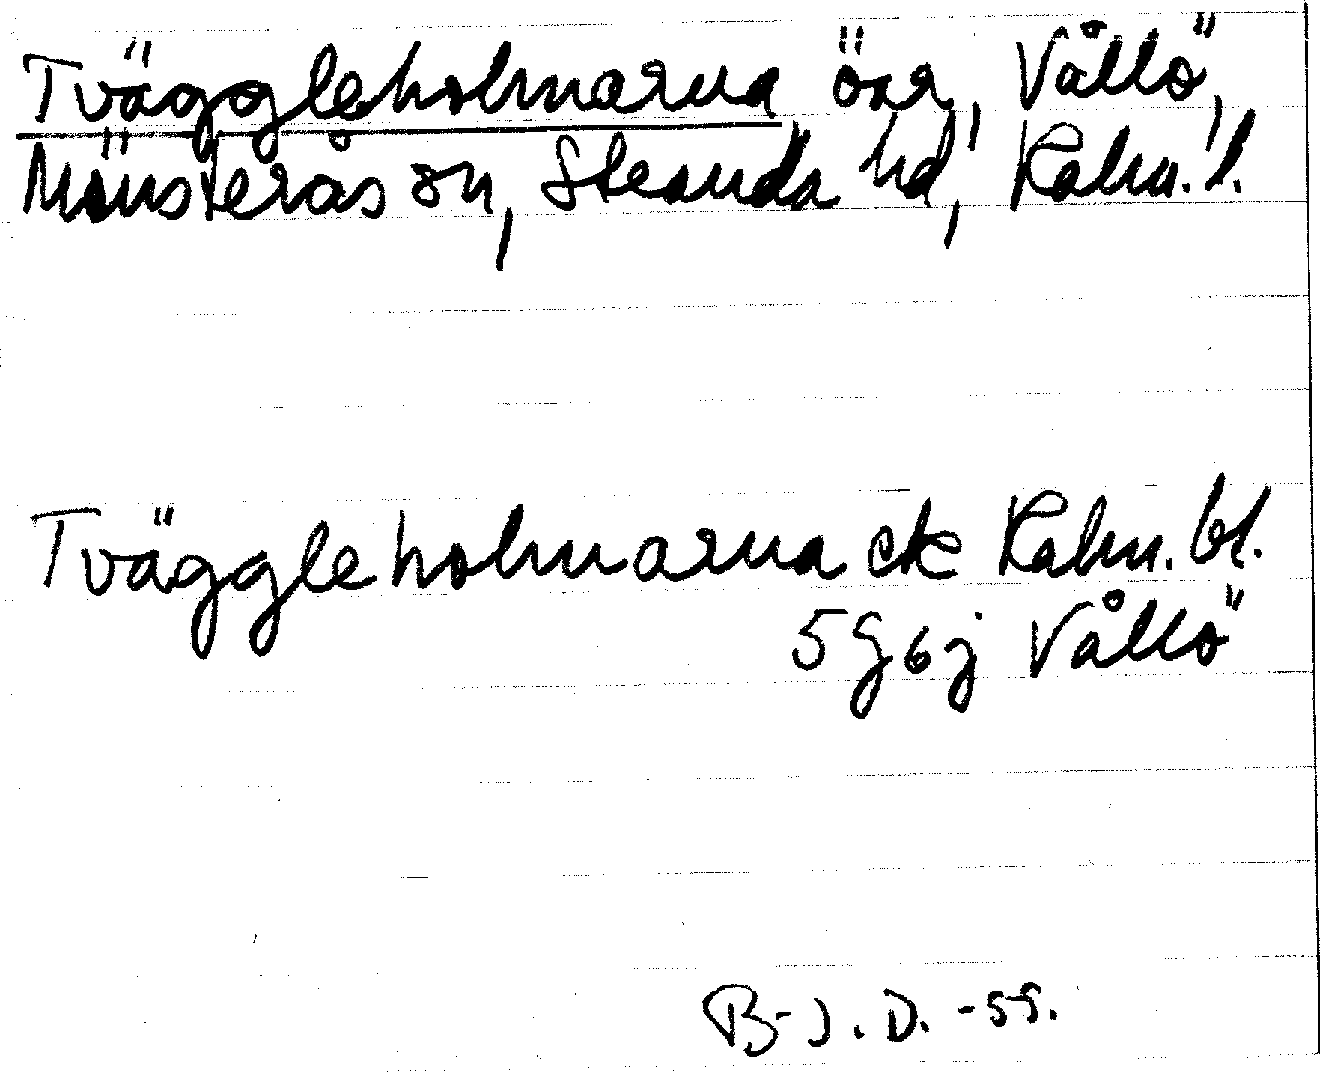 Tväggleholmarna öar, Vållö,
Mönsterås sn, Stranda hd, Kalm. l.
Tväggleholmarna ek Kalm. bl.
5 G 6 j Vållö
B-J. D. -55.